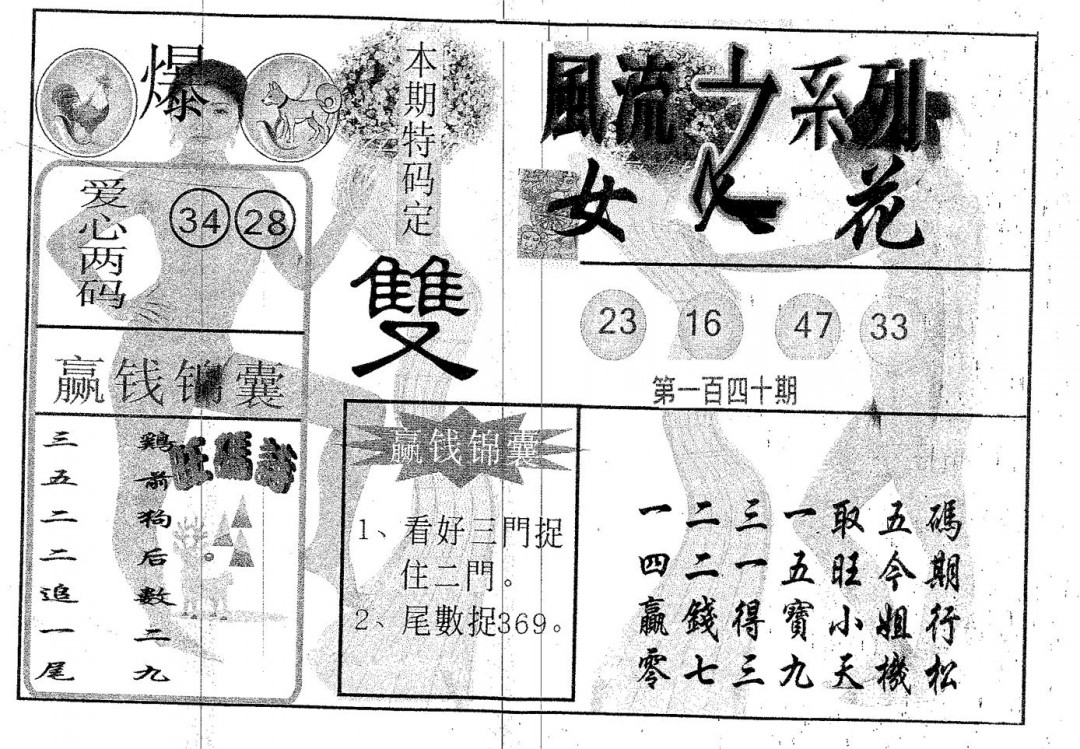 爆
爱心两码
34 28
赢钱锦囊
旺碼詩
鷄前狗后數二九
三五二二追一尾
本期特码定
雙
赢钱锦囊
1、看好三門捉
住二門。
2、尾數捉369。
風流之系列
女人花
23 16 47 33
第一百四十期
一二三一取五碼
四二一五旺今期
贏錢得寶小姐行
零七三九天機松